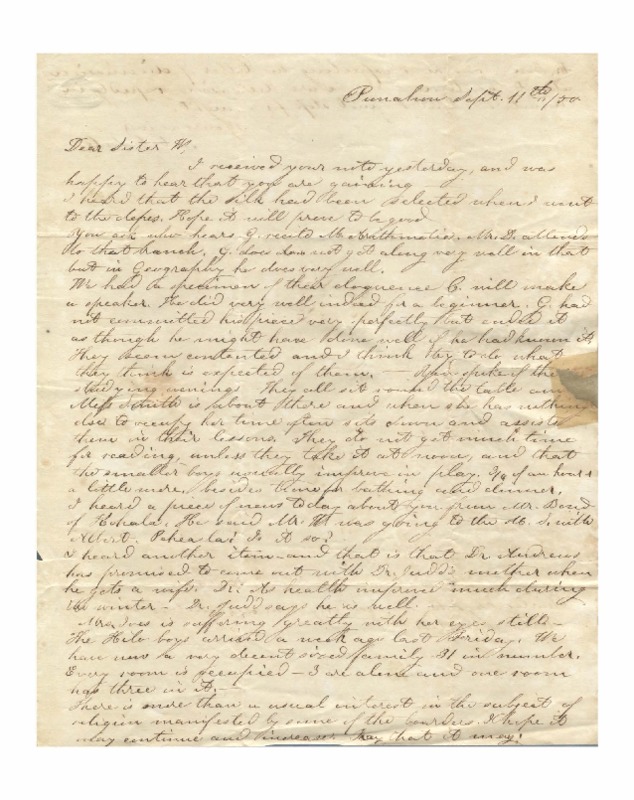 Punahou Sept. 11th /50
Dear Sister W,
I received your note yesterday, and was
happy to hear that you are gaining
I heard that the silk had been selected when I went
to the depos. Hope it will prove to be good
You ask who hears G. recite M. Arithmetic. Mr. D. attends
to that branch. G. does not get along very well in that
but in Geography he does very well.
We had a specimen of their eloquence C. will make
a speaker. He did very well indeed for a beginner. G. had
not committed his piece very perfectly but ended it
as though he might have done well if he had known it.
They seem contented and I think try to do what
they think is expected of them. — You spoke of the
studying evenings They all sit round the table and
Miss Smith is about there and when she has nothing
else to occupy her time often sits down and assists
them in their lessons. They do not get much time
for reading, unless they take it at noon, and that
the smaller boys usually improve in play. 3/4 of an hour &
a little more, besides time for bathing and dinner.
I heard a piece of news today about you from Mr. Bond
of Kohala. He said Mr. W. was going to the M. S. with
Albert. Pehea la? Is it so?
I heard another item—and that is that Dr. Andrews
has promised to come out with Dr. Judd's mother when
he gets a wife. Dr. A's health improved much during
the winter — Dr. Judd says he is well.
Mrs. Ives is suffering greatly with her eyes still—
The Hilo boys arrived a week ago last Friday. We
have now a very decent sized family 31 in number.
Every room is occupied — 3 are alone and one room
has three in it.—
There is more than a usual interest in the subject of
religion manifested by some of the boarders. I hope it
may continue and increase. Pray that it may!